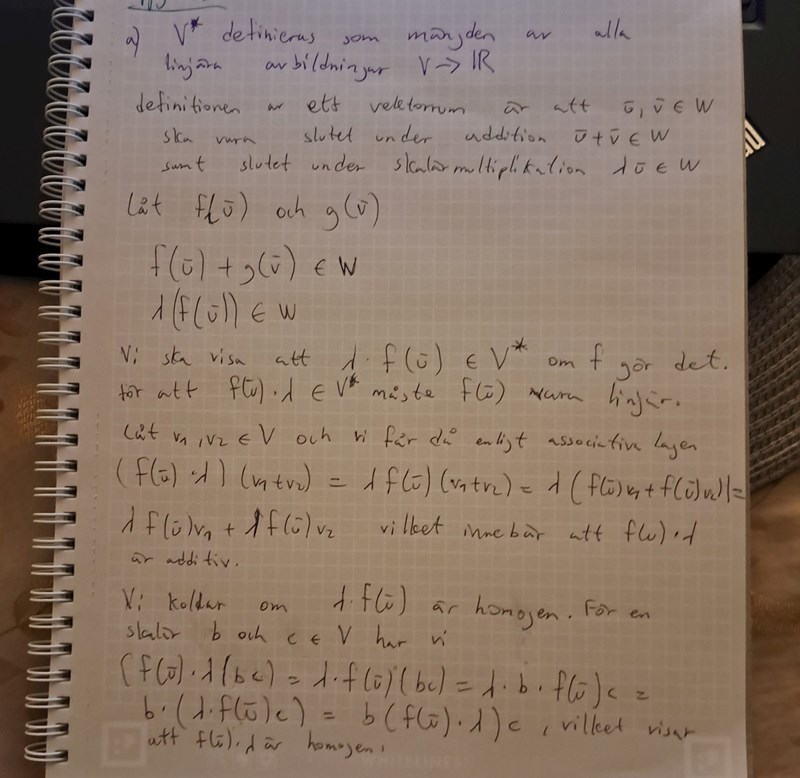 a) V* definieras som mängden av alla
linjära avbildningar V → ℝ
definitionen av ett vektorrum är att ū, v̄ ∈ W
ska vara slutet under addition ū + v̄ ∈ W
samt slutet under skalärmultiplikation λū ∈ W
Låt f(ū) och g(v̄)
f(ū) + g(v̄) ∈ W
λ(f(ū)) ∈ W
Vi ska visa att λ · f(ū) ∈ V* om f gör det.
för att f(ū) · λ ∈ V* måste f(ū) vara linjär.
Låt v₁, v₂ ∈ V och vi får då enligt associativa lagen
(f(ū) · λ) (v₁ + v₂) = λ f(ū) (v₁ + v₂) = λ (f(ū)v₁ + f(ū)v₂) =
λ f(ū)v₁ + λ f(ū)v₂ vilket innebär att f(u) · λ
är additiv.
Vi kollar om λ · f(ū) är homogen. För en
skalär b och c ∈ V har vi
(f(ū) · λ (bc) = λ · f(ū) (bc) = λ · b · f(ū)c =
b · (λ · f(ū)c) = b (f(ū) · λ)c, vilket visar
att f(ū) · λ är homogen.